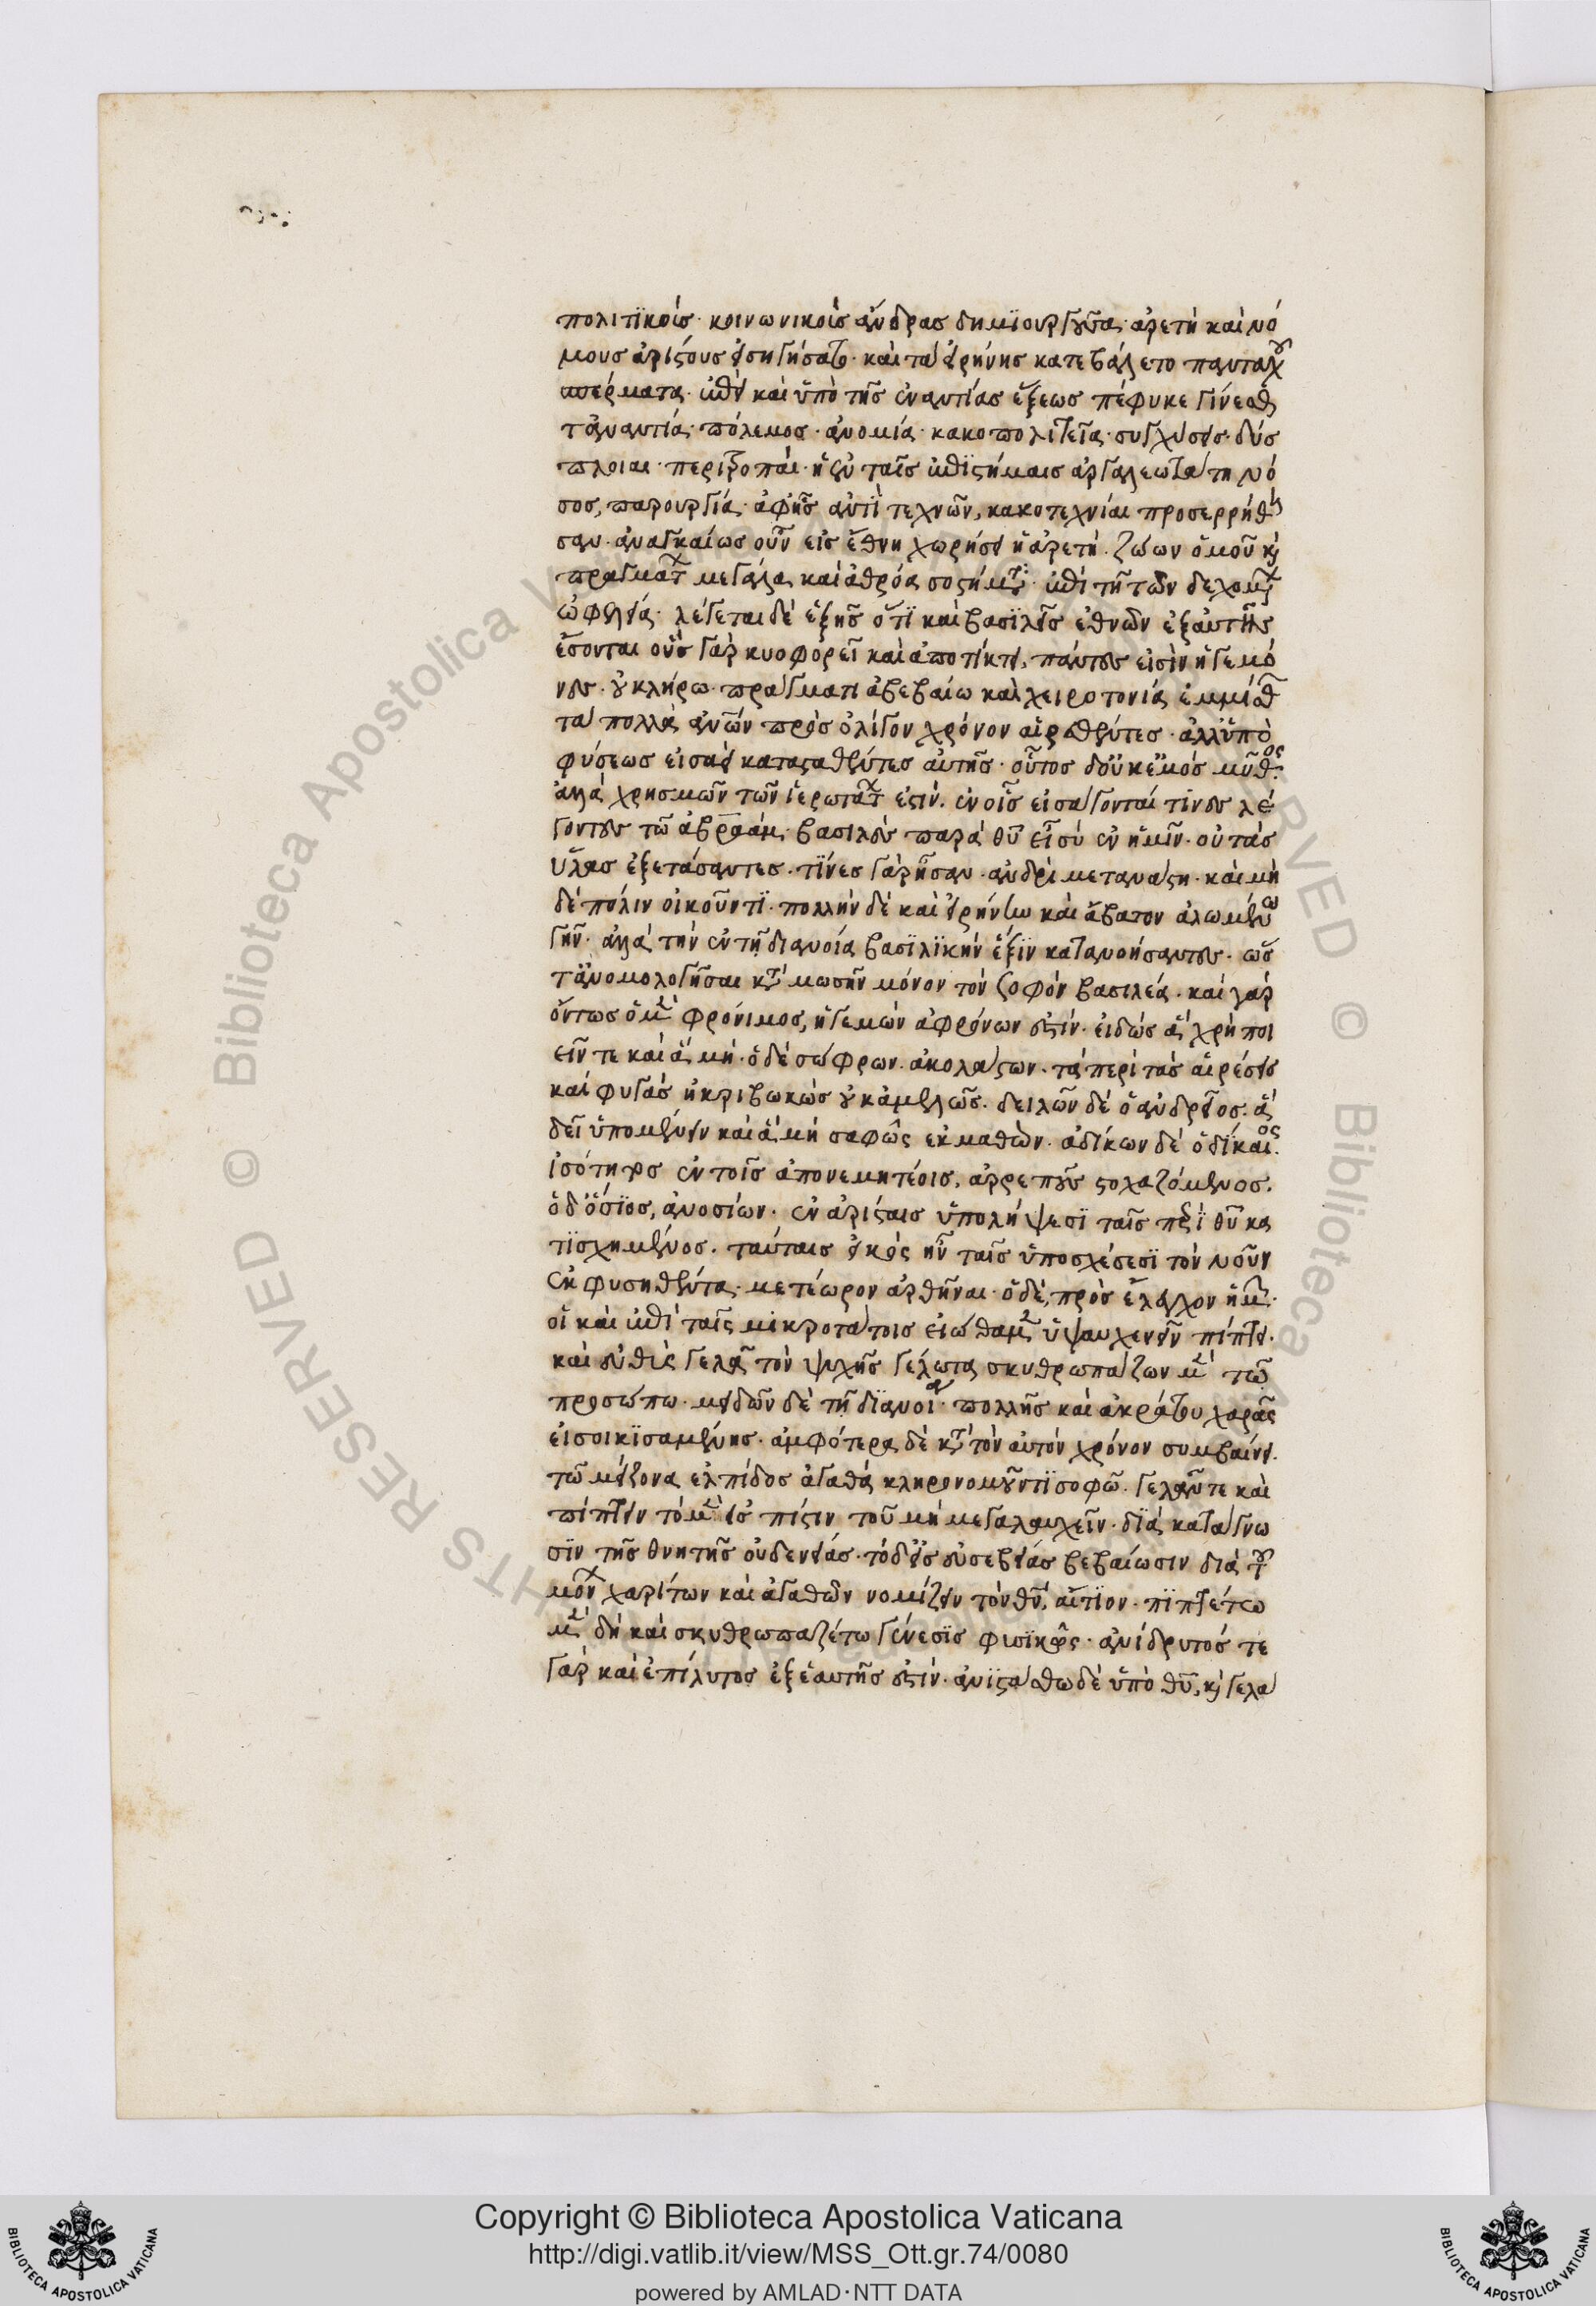 πολιτϊκοὶς· κοινωνικοὶς ἄνδρας δημϊουργοῦσα· ἀρετὴ καὶ νό
μους ἀρίστους εἰσηγήσατο· καὶ τὰ εἰρήνης κατεβάλετο πανταχοῦ
σπέρματα· ἐπεὶ καὶ ὑπὸ τῆς ἐναντίας ἕξεως πέφυκε γίνεσθαι
τἀναντία· πόλεμος· ἀνομία· κακοπολιτεῖα· συγχύσεις· δύσ
πλοιαι· περιτροπαί· ἡ ἐν ταῖς ἐπϊστήμαις ἀργαλεωτάτη νό
σος, πανουργία· ἀφ' ἧς ἀντὶ τεχνῶν, κακοτεχνίαι προσερρήθη
σαν· ἀναγκαίως οὖν εἰς ἔθνη χωρήσει ἡ ἀρετή· ζώων ὁμοῦ καὶ
πραγμάτων μεγάλα καὶ ἀθρόα συστήματα· ἐπὶ τῆ τῶν δεχομένων
ὠφελεία· λέγεται δὲ ἑξῆς ὅτϊ καὶ βασϊλεῖς ἐθνῶν ἐξ αὐτῆς
ἔσονται οὓς γὰρ κυοφορεῖ καὶ ἀποτίκτει, πάντες εἰσὶν ἡγεμό
νες· οὐ κλήρω· πράγματι ἀβεβαίω καὶ χειροτονία ἐμμίσθω
τὰ πολλὰ ἀνθρώπων πρὸς ὀλίγον χρόνον αἱρεθέντες· ἀλλ' ὑπὸ
φύσεως εἰσαεὶ κατασταθέντες αὐτῆς· οὗτος δ' οὐκ ἐμὸς μῦθος·
ἀλλὰ χρησμῶν τῶν ἱερωτάτων ἐστίν· ἐν οἷς εἰσάγονταί τϊνες λέ
γοντες τῶ ἀβραάμ· βασιλεὺς παρὰ θῦ εἶ σὺ ἐν ἡμῖν· οὐ τὰς
ὕλας ἐξετάσαντες· τϊνες γὰρ ἦσαν· ἀνδρὶ μετανάστη· καὶ μὴ
δὲ πόλιν οἰκοῦντϊ· πολλὴν δὲ καὶ εἰρήνην καὶ ἄβατον ἀλωμένω
γῆν· ἀλλὰ τὴν ἐν τῆ διανοία βασϊλϊκὴν ἕξϊν κατανοήσαντες· ὡς
τἀνομολογῆσαι κατὰ μωσῆν μόνον τὸν σοφὸν βασιλέα· καὶ γὰρ
ὄντως ὁ μὲν φρόνιμος, ἡγεμὼν ἀφρόνων ἐστίν· εἰδὼς ἃ χρὴ ποι
εῖν τε καὶ ἃ μή· ὁ δὲ σώφρων· ἀκολάστων· τὰ περὶ τὰς αἱρέσεις
καὶ φυγὰς ἠκριβωκὼς οὐκ ἀμελῶς· δειλῶν δὲ ὁ ἀνδρεῖος· ἃ
δεῖ ὑπομένειν καὶ ἃ μὴ σαφῶς ἐκμαθὼν· ἀδίκων δὲ ὁ δίκαιος·
ἰσότητος ἐν τοῖς ἀπονεμητέοις, ἀρρεποῦς στοχαζόμενος·
ὁ δ' ὅσϊος, ἀνοσίων· ἐν ἀρίσταις ὑπολήψεσϊ ταῖς περὶ θῦ κα
τϊσχημένος· ταύταις εἰκὸς ἦν ταῖς ὑποσχέσεσϊ τὸν νοῦν
ἐκφυσηθέντα· μετέωρον ἀρθῆναι· ὁ δὲ, πρὸς ἔλεγχον ἡμῶν·
οἳ καὶ ἐπὶ ταῖς μικροτάτοις εἰώθαμεν ὑψαυχενεῖν πίπτει·
καὶ εὐθὺς γελᾶ τὸν ψυχῆς γέλωτα σκυθρωπάζων μὲν τῶ
προσώπω· μειδῶν δὲ τῆ δϊανοία· πολλῆς καὶ ἀκράτου χαρᾶς
εἰσοικϊσαμένης· ἀμφότερα δὲ κατὰ τὸν αὐτὸν χρόνον συμβαίνει·
τῶ μείζονα ἐλπίδος ἀγαθὰ κληρονομοῦντϊ σοφῶ· γελᾶν τε καὶ
πίπτειν τὸ μὲν εἰς πίστιν τοῦ μὴ μεγαλαυχεῖν· δϊὰ κατάγνω
σϊν τῆς θνητῆς οὐδενείας· τὸ δ' εἰς εὐσεβείας βεβαίωσιν διὰ τοῦ
μόνον χαρίτων καὶ ἀγαθῶν νομίζειν τὸν θν, αἴτϊον· πϊπτέτω
μὲν δὴ καὶ σκυθρωπαζέτω γένεσϊς φυσϊκῶς· ἀνίδρυτός τε
γὰρ καὶ ἐπίλυπος ἐξ ἑαυτῆς ἐστίν· ἀνϊστάσθω δὲ ὑπὸ θῦ, καὶ γελά
Copyright © Biblioteca Apostolica Vaticana
http://digi.vatlib.it/view/MSS_Ott.gr.74/0080
powered by AMLAD·NTT DATA